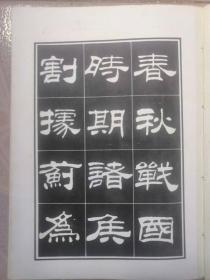 春秋戰國
時期諸侯
割據薊為